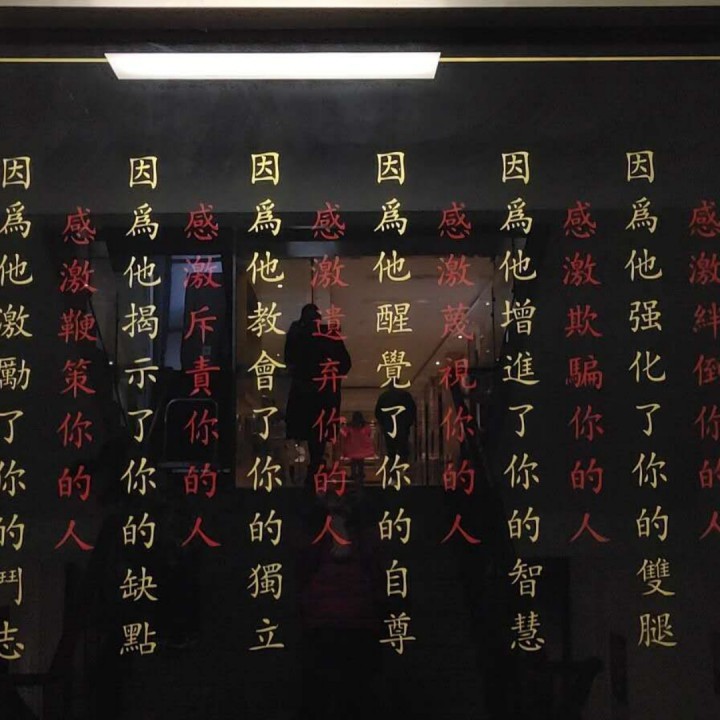 感激絆倒你的人
因為他强化了你的雙腿
感激欺騙你的人
因為他增進了你的智慧
感激蔑視你的人
因為他醒覺了你的自尊
感激遺弃你的人
因為他教會了你的獨立
感激斥責你的人
因為他揭示了你的缺點
感激鞭策你的人
因為他激勵了你的鬥志